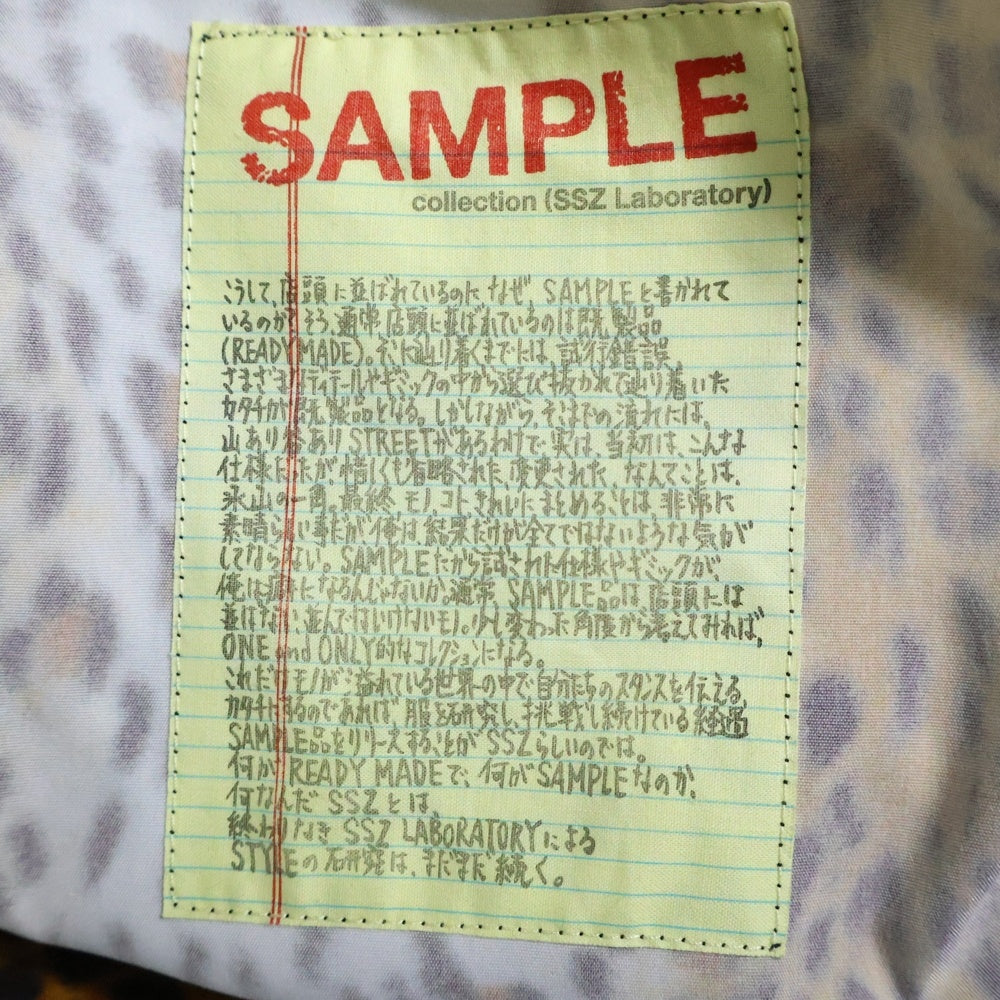 SAMPLE
collection (SSZ Laboratory)
こうして、店頭に並ばれているのに なぜ、SAMPLEと書かれて
いるのか? そう、通常店頭に並ばれているのは既製品
(READY MADE)。そこに辿り着くまでには、試行錯誤、
さまざまなディテールやギミックの中から選び抜かれて辿り着いた
カタチが既製品となる。しかしながら、そこまでの流れには、
山あり谷あり STREETがあるわけで、実は、当初は、こんな
仕様だったが、惜しくも省略された、変更された、なんてことは、
氷山の一角。最終 モノ、コト、きれいにまとめることは、非常に
素晴らしい事だが、俺は、結果だけが全てではないような気が
してならない。SAMPLEだから試された仕様やギミックが、
俺は になるんじゃないか。通常 SAMPLE品は店頭には
並ばない、並んではいけないモノ。少し変わった角度から考えてみれば、
ONE and ONLY的なコレクションになる。
これだけモノが溢れている世界の中で自分たちのスタンスを伝える、
カタチにするのであれば、服を研究し、挑戦し続けている経過
SAMPLE品をリリースすることが SSZらしいのでは。
何が READY MADEで、何がSAMPLEなのか、
何なんだ SSZとは、
終わりなき SSZ LABORATORYによる
STYLEの研究は、まだまだ続く。